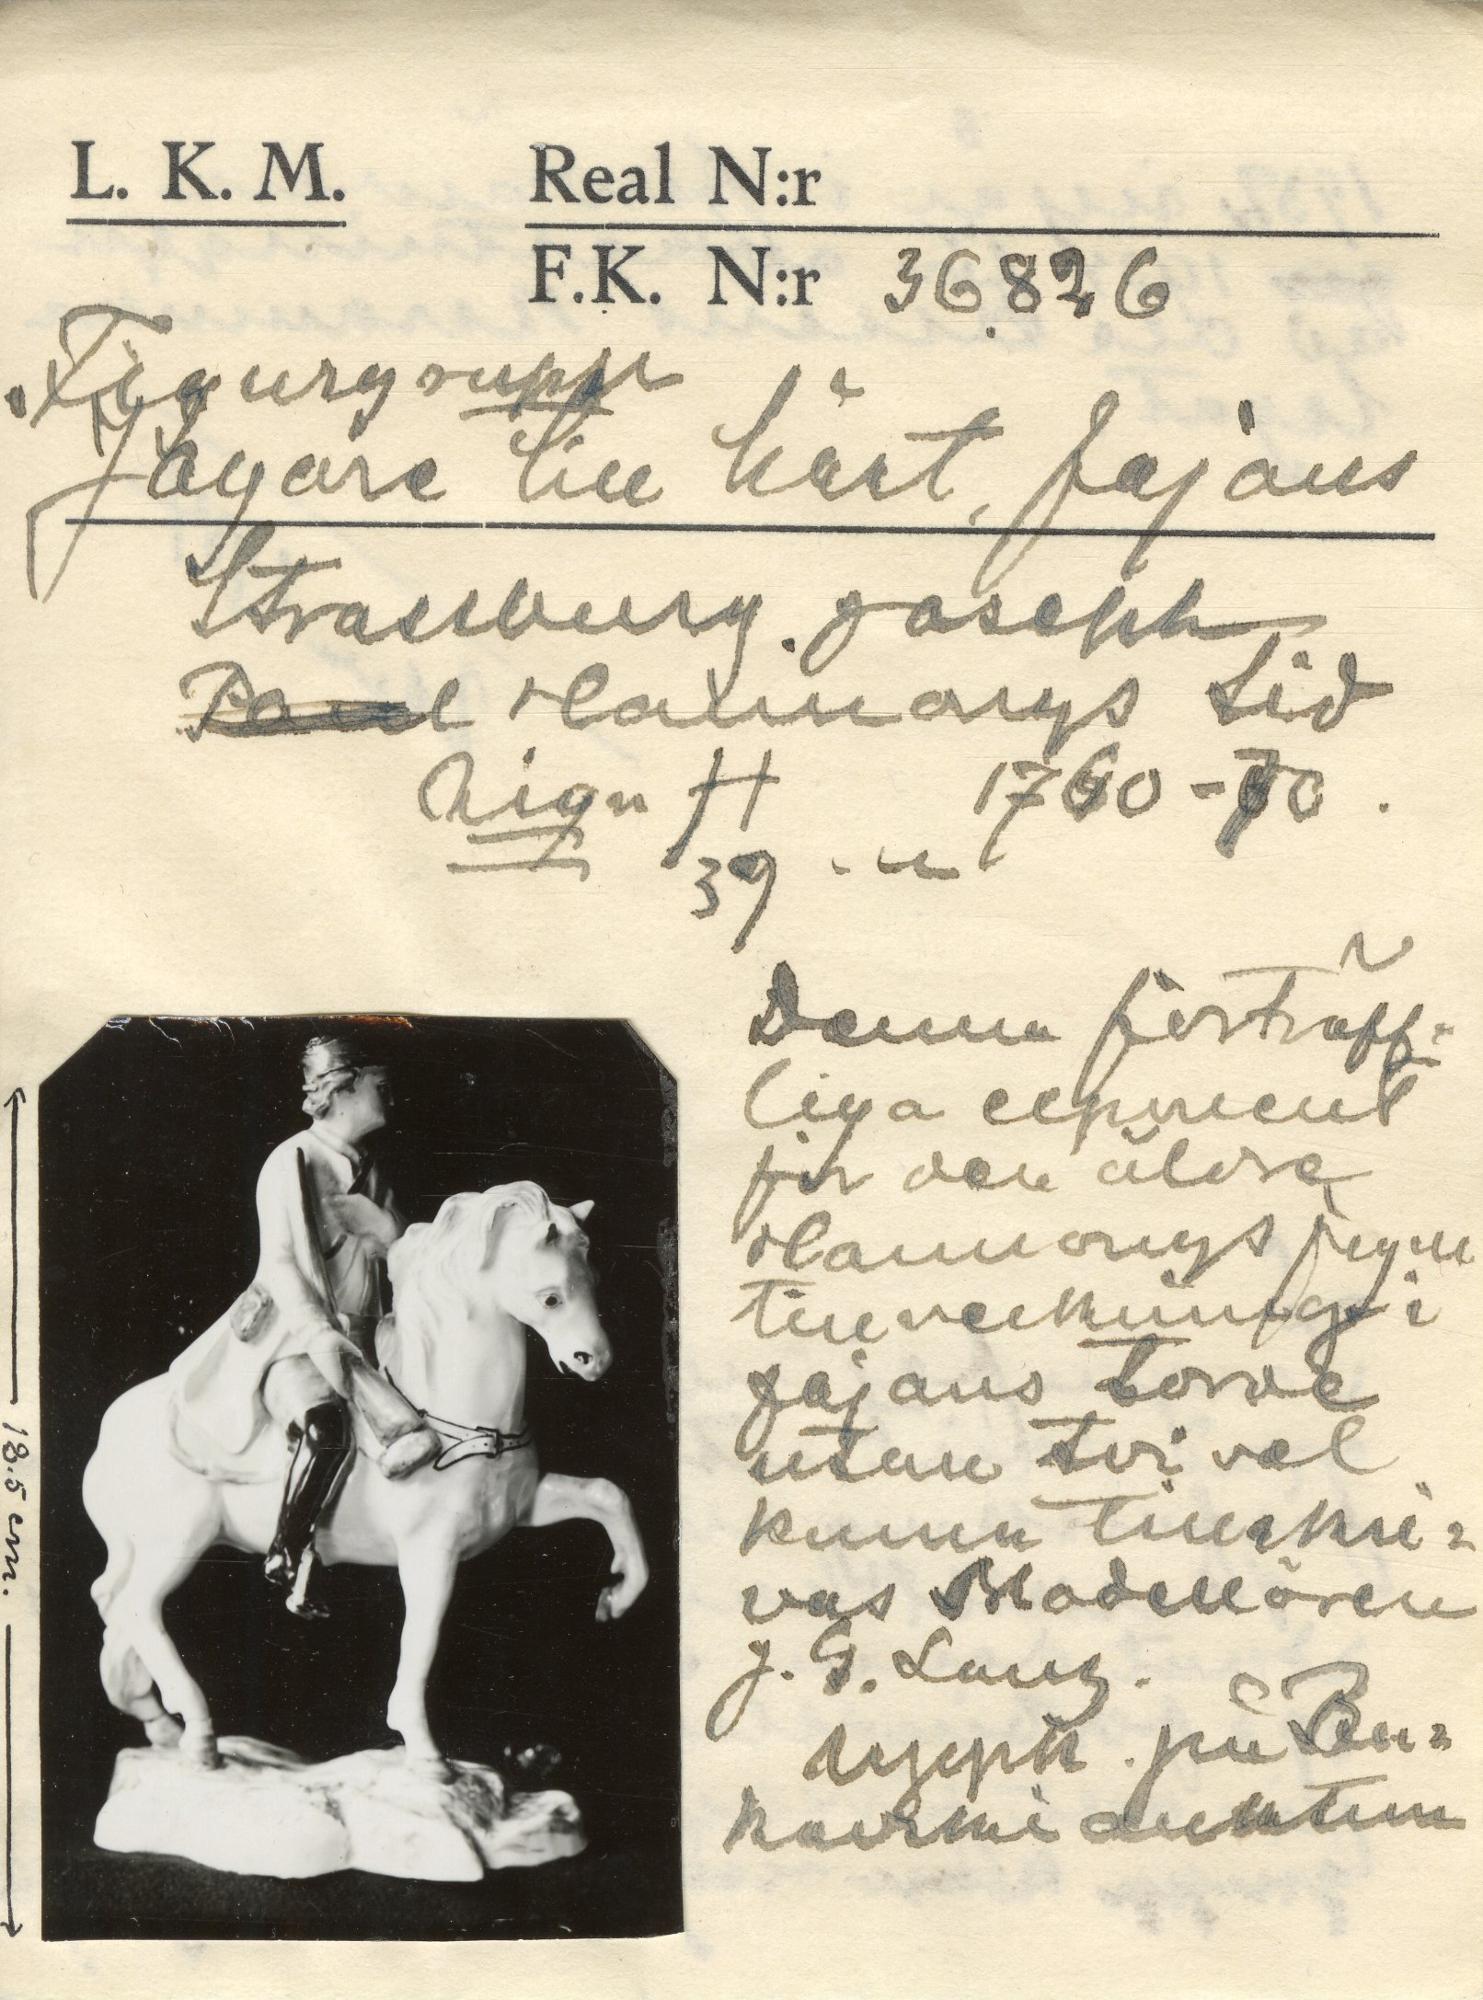 L. K. M. Real N:r
F.K. N:r 36826
Figurgrupp
Jägare till häst, fajans
Strassburg. Joseph
Paul Hannongs tid
Sign H 1760-70.
39
Denna förträff-
liga exponent
för den äldre
Hannongs figur
tillverkning i
fajans torde
utan tvivel
kunna tillskri-
vas Modellören
J. G. Lanz.
Uppk. på Bu-
kowskiauktion
18.5 cm.